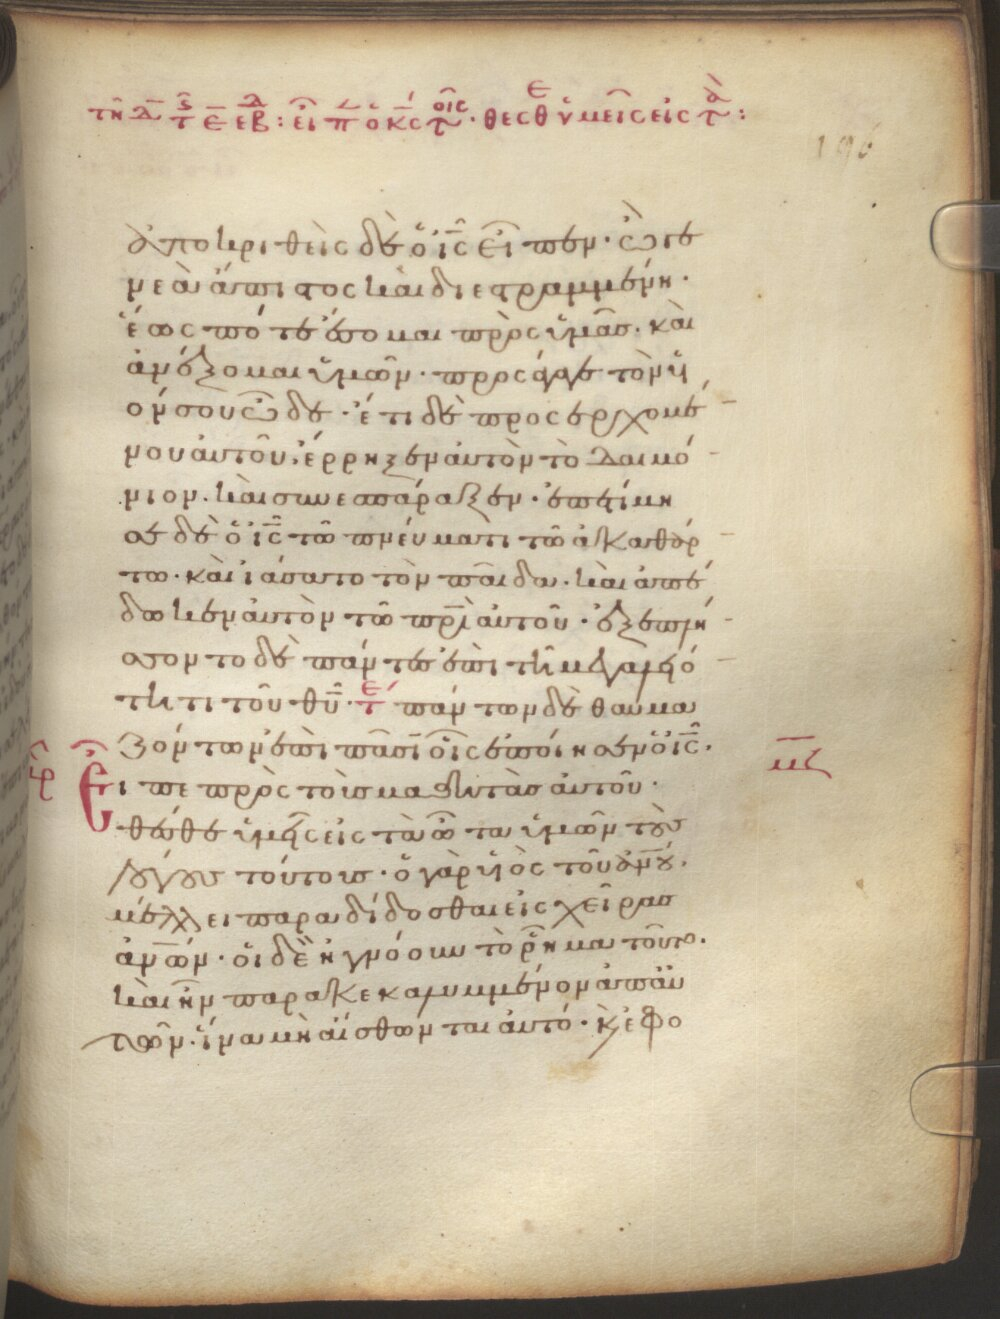 τῆ δ̅ τ͞ς ε̅ ἑβδ : εἶπ ὁ κ̅ς τοῖς · θέσθε ὑμεῖς εἰς τὰ :
196
ἀποκριθεὶς δὲ ὁ ι̅ς̅ εἶπεν · ὦ γε
νεὰ ἄπιστος καὶ διεστραμμένη ·
ἕως πότε ἔσομαι πρὸς ὑμᾶς · καὶ
ἀνέξομαι ὑμῶν · προσάγαγε τὸν υἱ
όν σου ὧδε · ἔτι δὲ προσερχομέ
νου αὐτοῦ, ἔρρηξεν αὐτὸν τὸ δαιμό
νιον · καὶ συνεσπάραξεν · ἐπετίμη
σε δὲ ὁ ι̅ς̅ τῶ πνεύματι τῶ ἀκαθάρ
τω · καὶ ἰάσατο τὸν παῖδα · καὶ ἀπέ
δωκεν αὐτὸν τῶ π̅ρ̅ι̅ αὐτοῦ · ἐξεπλή
σσοντο δὲ πάντες ἐπὶ τῆ μεγαλειό
τητι τοῦ θ̅υ̅ · τε πάντων δὲ θαυμα
ζόντων ἐπὶ πᾶσιν οἷς ἐποίησεν ὁ ι̅ς̅ · μζ
ἀρ Εἶπε πρὸς τοὺς μαθητὰς αὐτοῦ ·
θέσθε ὑμεῖς εἰς τὰ ὦτα ὑμῶν τοὺς
λόγους τούτους · ὁ γὰρ υἱὸς τοῦ α̅ν̅ο̅υ̅ ·
μέλλει παραδίδοσθαι εἰς χεῖρας
α̅ν̅ω̅ν̅ · οἱ δὲ ἠγνόουν τὸ ῥῆμα τοῦτο ·
καὶ ἦν παρακεκαλυμμένον ἀπ' αὐ
τῶν · ἵνα μὴ αἴσθωνται αὐτό · κ̀ ἐφο